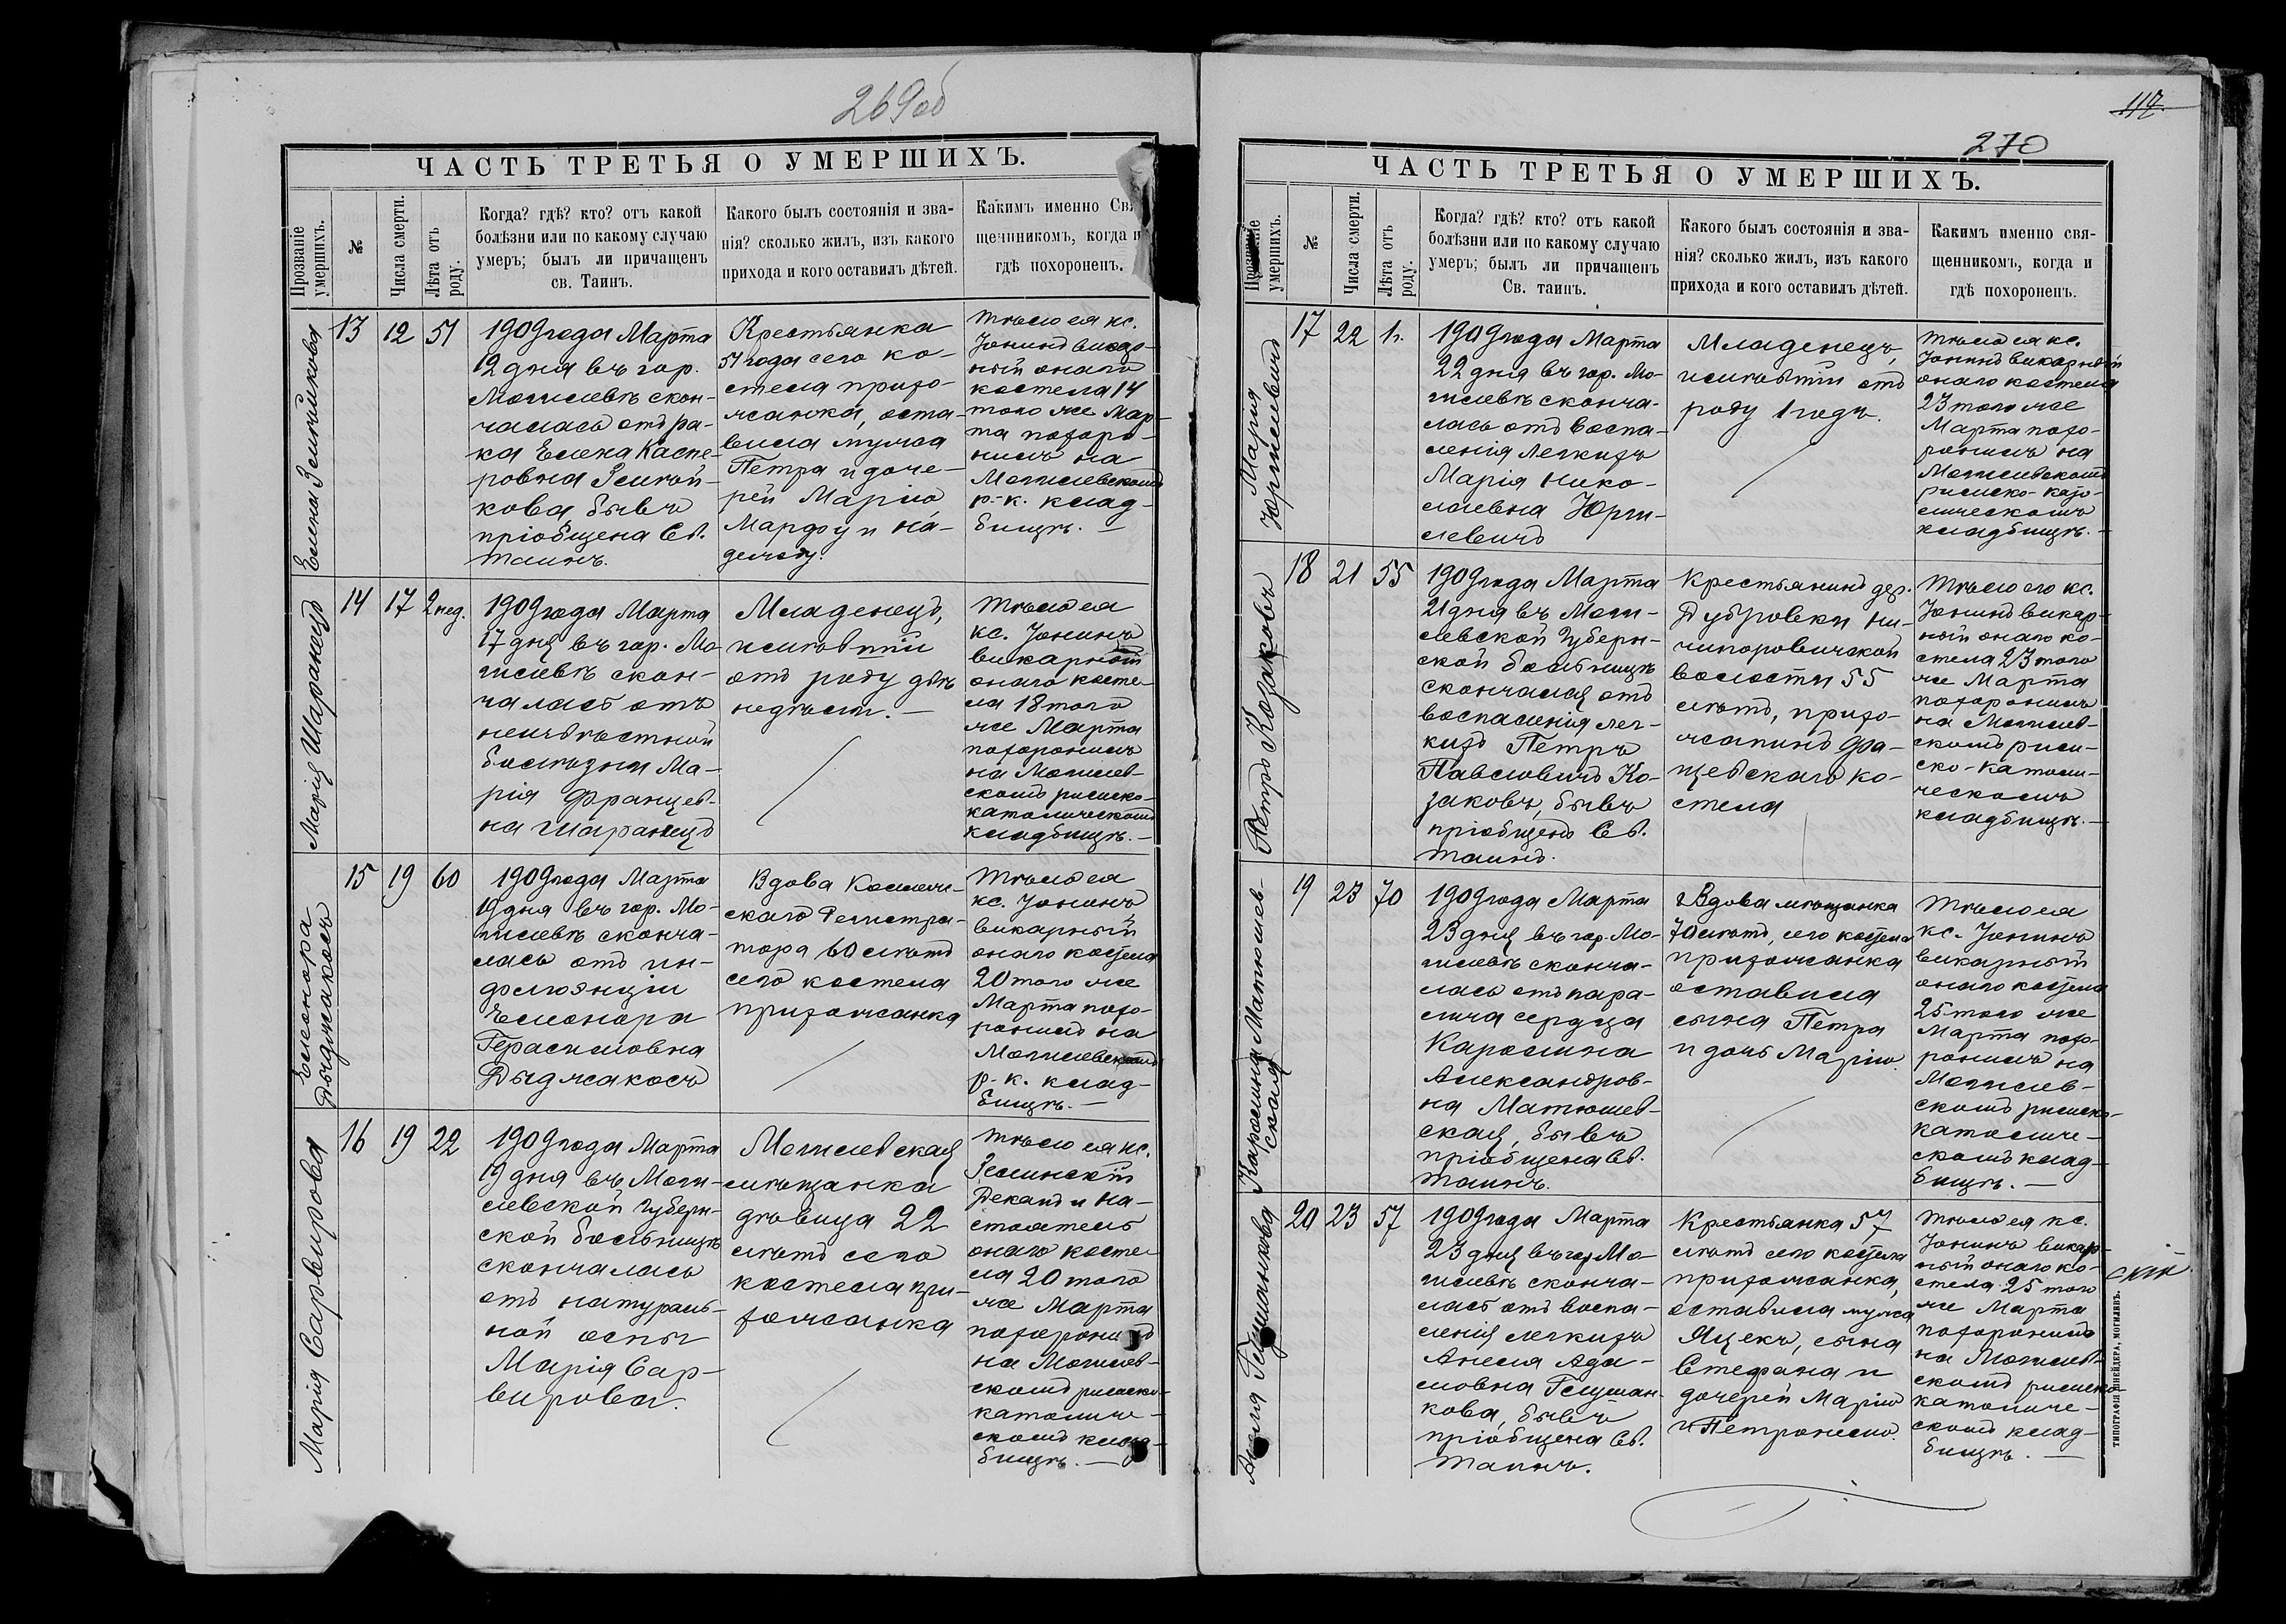 269об
ЧАСТЬ ТРЕТЬЯ О УМЕРШИХЪ.
Прозваніе умершихъ.
№
Числа смерти.
Лѣта отъ роду.
Когда? гдѣ? кто? отъ какой
болѣзни или по какому случаю
умеръ; былъ ли причащенъ
св. Таинъ.
Какого былъ состоянія и зва-
нія? сколько жилъ, изъ какого
прихода и кого оставилъ дѣтей.
Какимъ именно Свя
щенникомъ, когда и
гдѣ похороненъ.
Елена
13
12
51
1909 года Марта
12 дня въ гор.
Могилевѣ скон-
чалась отъ ра-
ка Елена Каспе-
ровна
кова бывъ
пріобщена Св.
Таинъ.
Крестьянка
51 года сего ко-
стела прихо-
жанка, оста-
вила мужа
Петра и доче-
рей Марію
Марфу и На-
дежду.
Тѣло ея кс.
Іонинъ викар-
ный онаго
костела 14
того же Мар-
та похоро-
нилъ на
Могилевскомъ
р.-к. клад-
бищѣ. —
Марія Шаранецъ
14
17
2 нед.
1909 года Марта
17 дня въ гор. Мо-
гилевѣ скон-
чалась отъ
неизвѣстной
болѣзни Ма-
рія Францев-
на Шаранецъ
Младенецъ,
имѣвшій
отъ роду двѣ
недѣли. —
Тѣло ея
кс. Іонинъ
викарный
онаго косте-
ла 18 того
же Марта
похоронилъ
на Могилев-
скомъ римско-
католическомъ
кладбищѣ. —
Елеонора
Выджакосъ
15
19
60
1909 года Марта
19 дня въ гор. Мо-
гилевѣ сконча-
лась отъ ин-
флюэнціи
Елеонора
Герасимовна
Выджакосъ
Вдова Коллеж-
скаго Регистра-
тора 60 лѣтъ
сего костела
прихожанка
Тѣло ея
кс. Іонинъ
викарный
онаго костела
20 того же
Марта похо-
ронилъ на
Могилевскомъ
р.-к. клад-
бищѣ. —
Марія Сарвирова
16
19
22
1909 года Марта
19 дня въ Моги-
левской Губерн-
ской больницѣ
скончалась
отъ натураль-
ной оспы
Марія Сар-
вирова.
Могилевская
мѣщанка
дѣвица 22
лѣтъ сего
костела при-
хожанка
Тѣло ея кс.
Зелинскій
Деканъ и на-
стоятель
онаго косте-
ла 20 того
же Марта
похоронилъ
на Могилев-
скомъ римско-
католиче-
скомъ клад-
бищѣ. —
117.
270
ЧАСТЬ ТРЕТЬЯ О УМЕРШИХЪ.
Прозваніе умершихъ.
№
Числа смерти.
Лѣта отъ роду.
Когда? гдѣ? кто? отъ какой
болѣзни или по какому случаю
умеръ; былъ ли причащенъ
Св. таинъ.
Какого былъ состоянія и зва-
нія? сколько жилъ, изъ какого
прихода и кого оставилъ дѣтей.
Какимъ именно свя-
щенникомъ, когда и
гдѣ похороненъ.
Марія
Юргилевичъ
17
22
1 г.
1909 года Марта
22 дня въ гор. Мо-
гилевѣ сконча-
лась отъ воспа-
ленія легкихъ
Марія Нико-
лаевна Юрги-
левичъ
Младенецъ,
имѣвшій отъ
роду 1 годъ.
Тѣло ея кс.
Іонинъ викарный
онаго костела
23 того же
Марта похо-
ронилъ на
Могилевскомъ
римско-като-
лическомъ
кладбищѣ. —
Петръ Козаковъ
18
21
55
1909 года Марта
21 дня въ Моги-
левской Губерн-
ской больницѣ
скончался отъ
воспаленія лег-
кихъ Петръ
Павловичъ Ко-
заковъ, бывъ
пріобщенъ Св.
Таинъ.
Крестьянинъ дер.
Дубровки Ни-
чипоровичской
волости 55
лѣтъ, прихо-
жанинъ Фа-
щевскаго ко-
стела
Тѣло его кс.
Іонинъ викар-
ный онаго ко-
стела 23 того
же Марта
похоронилъ
на Могилев-
скомъ рим-
ско-католи-
ческомъ
кладбищѣ. —
Каролина Матюшев-
ская
19
23
70
1909 года Марта
23 дня въ гор. Мо-
гилевѣ сконча-
лась отъ пара-
лича сердца
Каролина
Александров-
на Матюшев-
ская, бывъ
пріобщена Св.
Таинъ.
Вдова мѣщанка
70 лѣтъ, сего костела
прихожанка
оставила
сына Петра
и дочь Марію.
Тѣло ея
кс. Іонинъ
викарный
онаго костела
25 того же
Марта похо-
ронилъ на
Могилев-
скомъ римско-
католиче-
скомъ клад-
бищѣ. —
Анеля Глушанкова
20
23
57
1909 года Марта
23 дня въ гор. Мо-
гилевѣ сконча-
лась отъ воспа-
ленія легкихъ
Анеля Ада-
мовна Глушан-
кова, бывъ
пріобщена Св.
Таинъ.
Крестьянка 57
лѣтъ сего костела
прихожанка,
оставила мужа
Яцекъ, сына
Стефана и
дочерей Марію
и Петронелю.
Тѣло ея кс.
Іонинъ викар-
ный онаго ко-
стела 25 того
же Марта
похоронилъ
на Могилев-
скомъ римско-
католиче-
скомъ клад-
бищѣ. —
скій
ТИПОГРАФІЯ ШНЕЙДЕРА, МОГИЛЕВЪ.